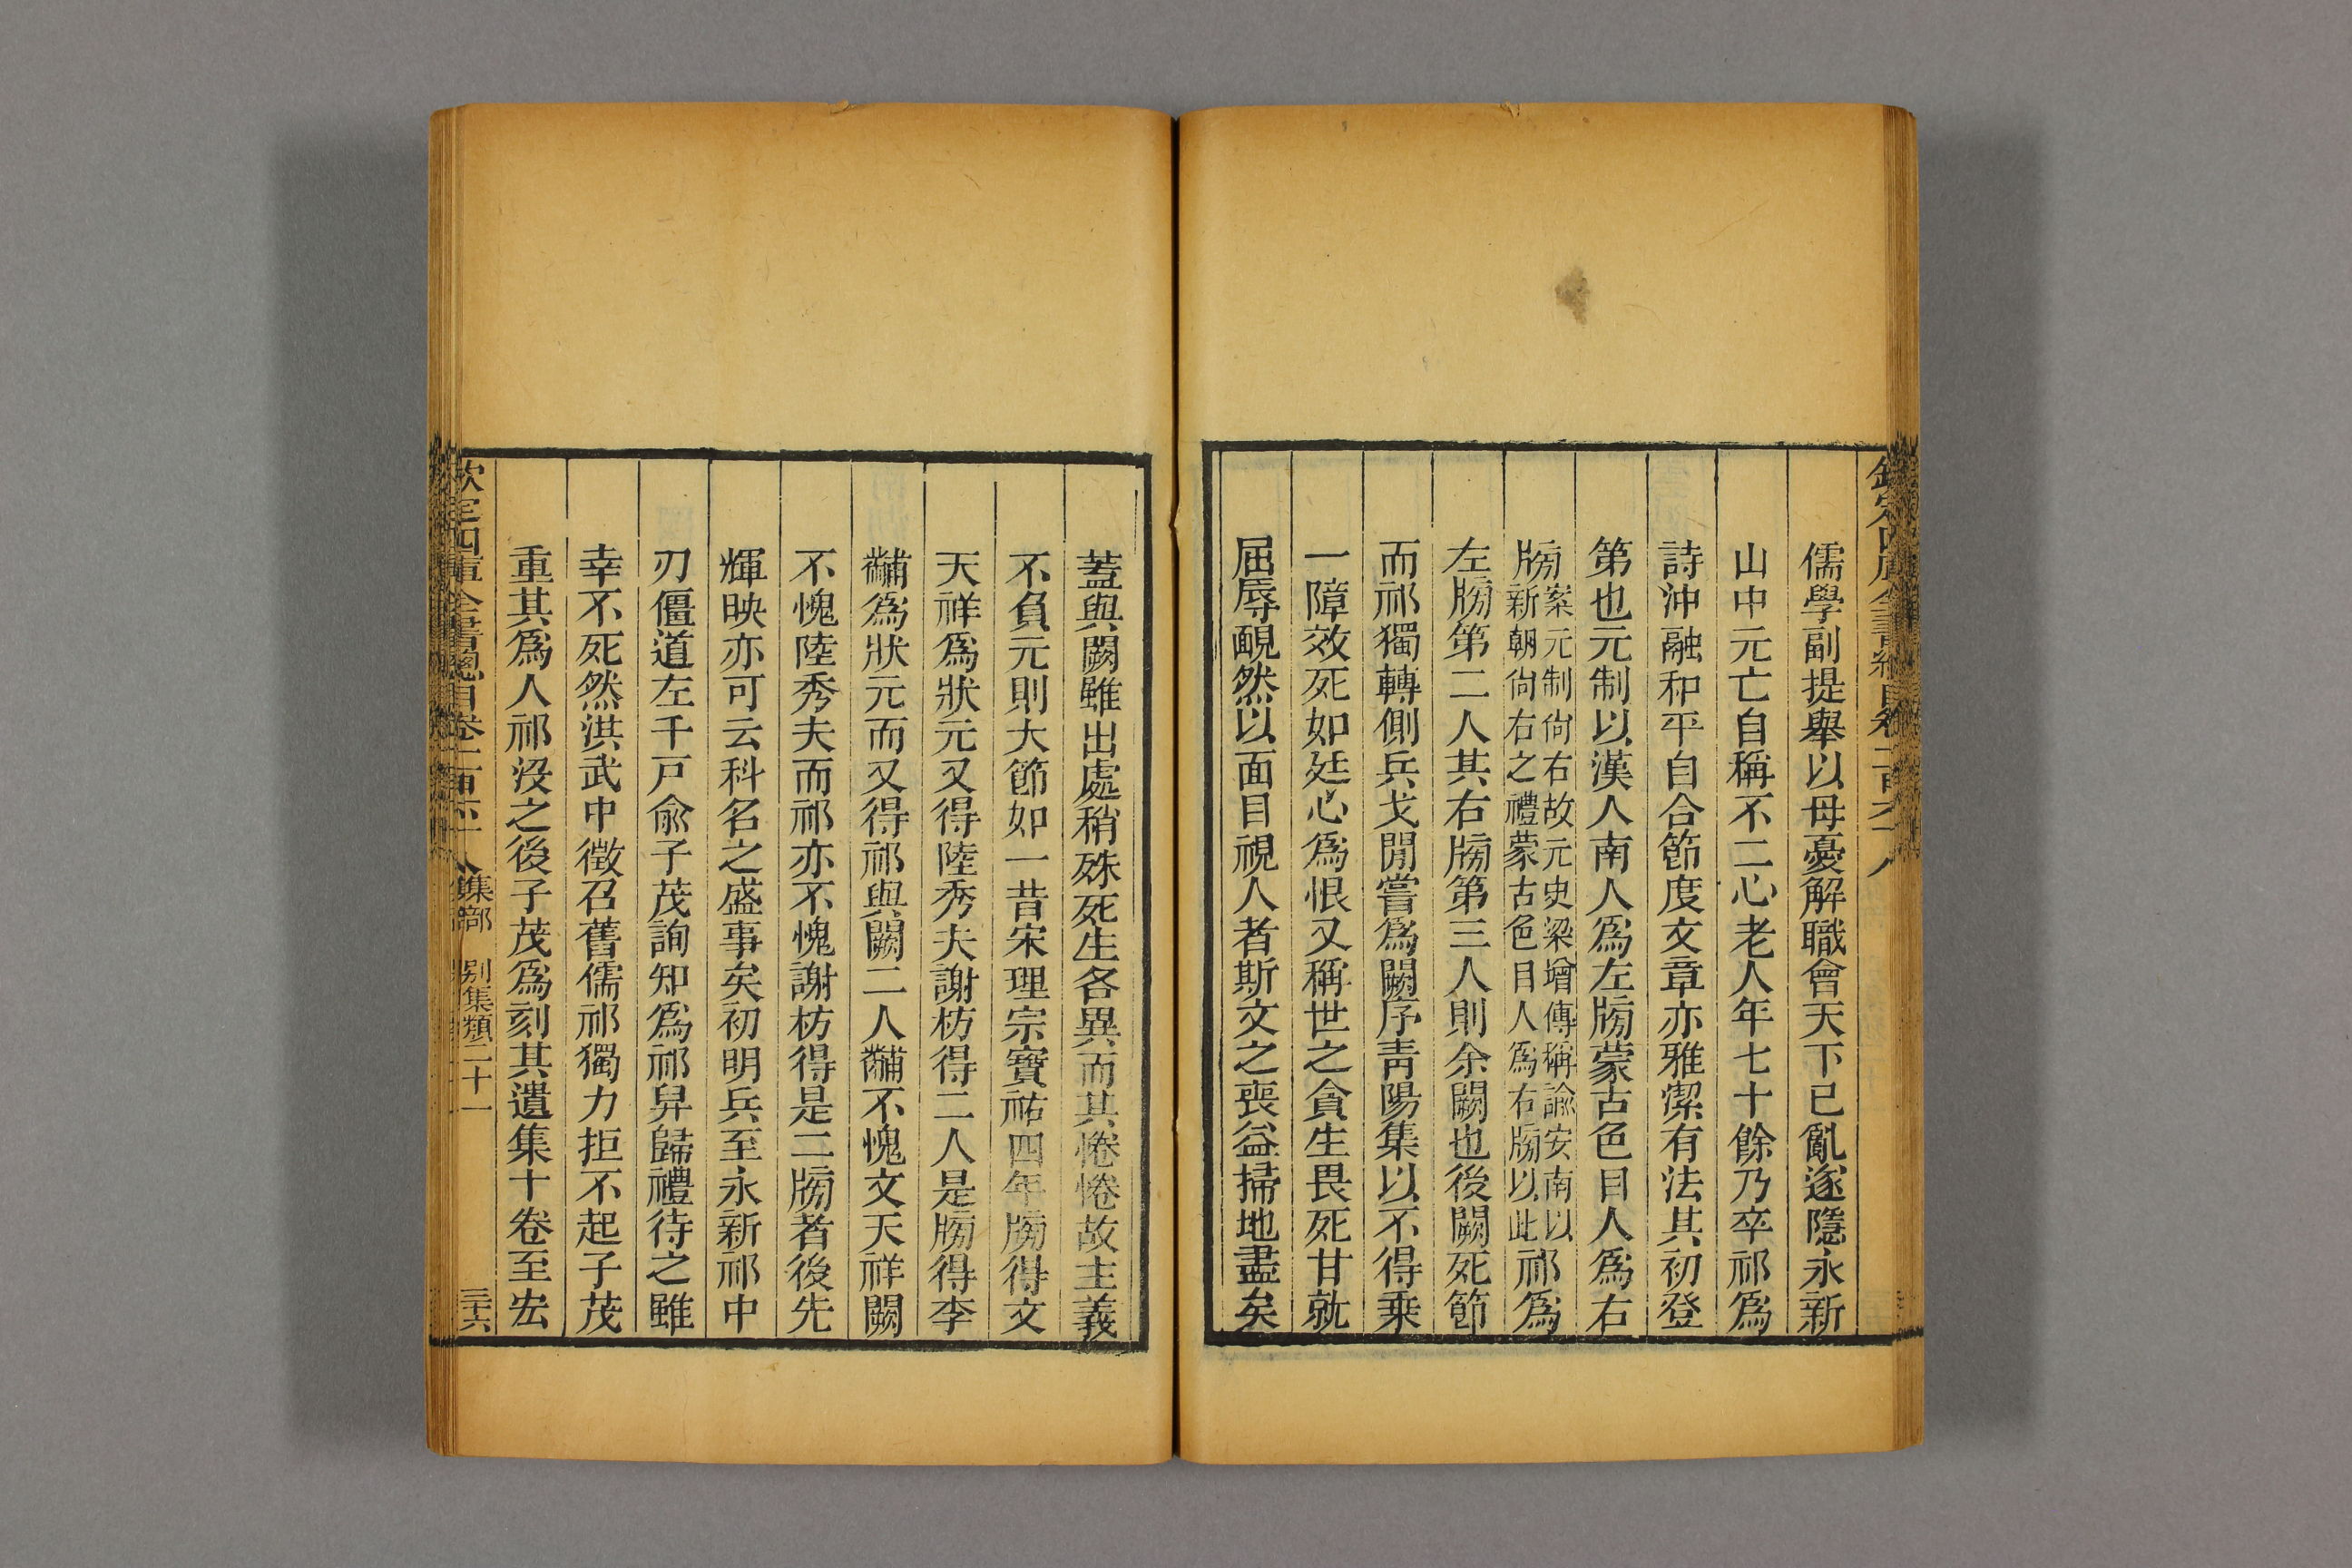 欽定四庫全書總目卷一百六十八
儒學副提舉以母憂解職會天下已亂遂隱永新
山中元亡自稱不二心老人年七十餘乃卒祁爲
詩沖融和平自合節度文章亦雅潔有法其初登
第也元制以漢人南人爲左牓蒙古色目人爲右
牓案元制尙右故元史梁增傳稱諭安南以
新朝尙右之禮蒙古色目人爲右牓以此祁爲
左牓第二人其右牓第三人則余闕也後闕死節
而祁獨轉側兵戈閒嘗爲闕序靑陽集以不得乘
一障效死如廷心爲恨又稱世之貪生畏死甘就
屈辱靦然以面目視人者斯文之喪益掃地盡矣
蓋與闕雖出處稍殊死生各異而其惓惓故主義
不負元則大節如一昔宋理宗寶祐四年牓得文
天祥爲狀元又得陸秀夫謝枋得二人是牓得李
黼爲狀元而又得祁與闕二人黼不愧文天祥闕
不愧陸秀夫而祁亦不愧謝枋得是二牓者後先
輝映亦可云科名之盛事矣初明兵至永新祁中
刃僵道左千戸兪子茂詢知爲祁舁歸禮待之雖
幸不死然洪武中徵召舊儒祁獨力拒不起子茂
重其爲人祁沒之後子茂爲刻其遺集十卷至宏
欽定四庫全書總目卷一百六十八 集部 別集類二十一 三十六